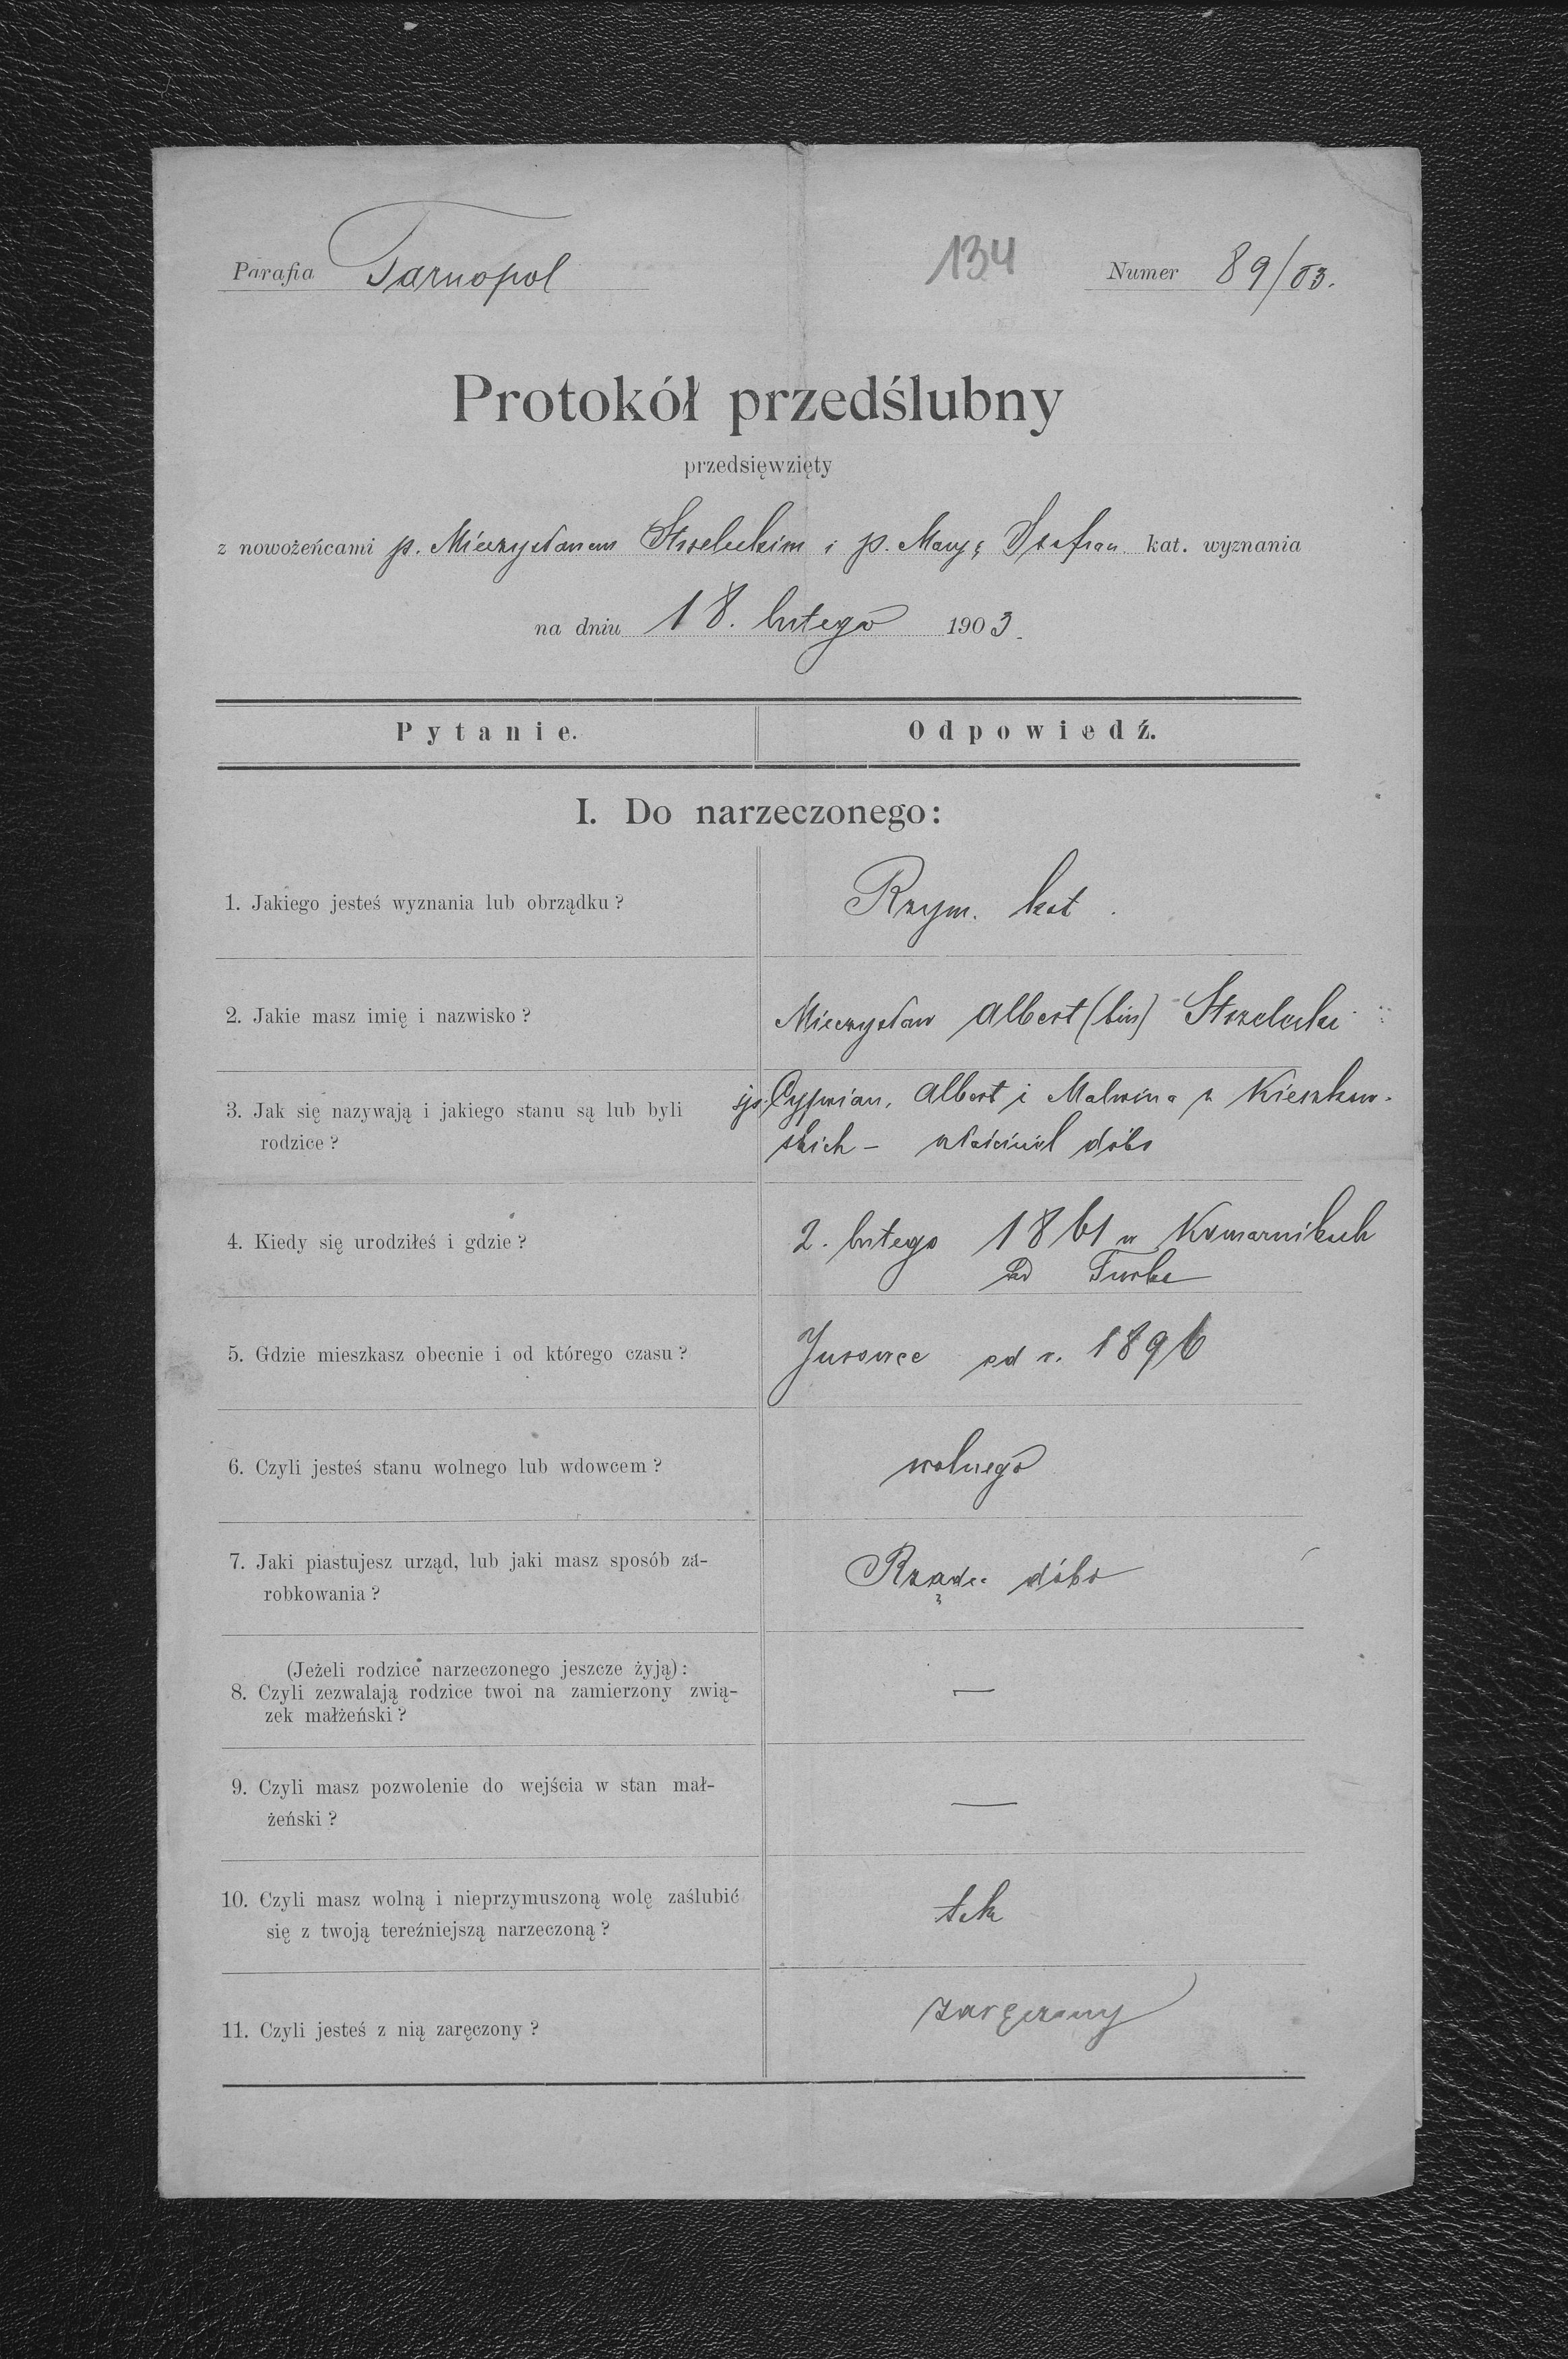 Parafia Tarnopol 134 Numer 89/03.
Protokół przedślubny
przedsięwzięty
z nowożeńcami p. Mieczysławem Strzeleckim i p. Maryą Szafran kat. wyznania
na dniu 18. lutego 1903.
Pytanie. Odpowiedź.
I. Do narzeczonego:
1. Jakiego jesteś wyznania lub obrządku? Rzym. kat.
2. Jakie masz imię i nazwisko? Mieczysław Albert (bin) Strzelecki
3. Jak się nazywają i jakiego stanu są lub byli śp. Cyprian, Albert i Malwina z Kieszkow-
rodzice? skich – właściciel dóbr
4. Kiedy się urodziłeś i gdzie? 2. lutego 1861 w Komarnikach
Turka
5. Gdzie mieszkasz obecnie i od którego czasu? od r. 1896
6. Czyli jesteś stanu wolnego lub wdowcem? wolnego
7. Jaki piastujesz urząd, lub jaki masz sposób za-
robkowania? Rządca dóbr
(Jeżeli rodzice narzeczonego jeszcze żyją):
8. Czyli zezwalają rodzice twoi na zamierzony zwią- —
zek małżeński?
9. Czyli masz pozwolenie do wejścia w stan mał- —
żeński?
10. Czyli masz wolną i nieprzymuszoną wolę zaślubić tak
się z twoją tereźniejszą narzeczoną?
11. Czyli jesteś z nią zaręczony? zaręczony